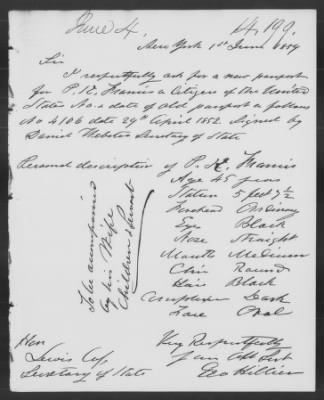 June 4. 14,199.
New York 1st June 1859
Sir
I respectfully ask for a new passport
for P. H. Francis a Citizen of the United
States No. & date of old passport as follows
No 4106 date 29th April 1852. Signed by
Daniel Webster Secretary of State
Personal description of P. H. Francis
Age 45 years
Stature 5 feet 7 1/2
Forehead Ordinary
Eyes Black
Nose Straight
Mouth Medium
Chin Round
Hair Black
Complexion Dark
Face Oval
To be accompanied
by his Wife
Children & Servant
Very Respectfully
Yr am Obt Svt
Geo Hillier
Hon
Lewis Cass
Secretary of State